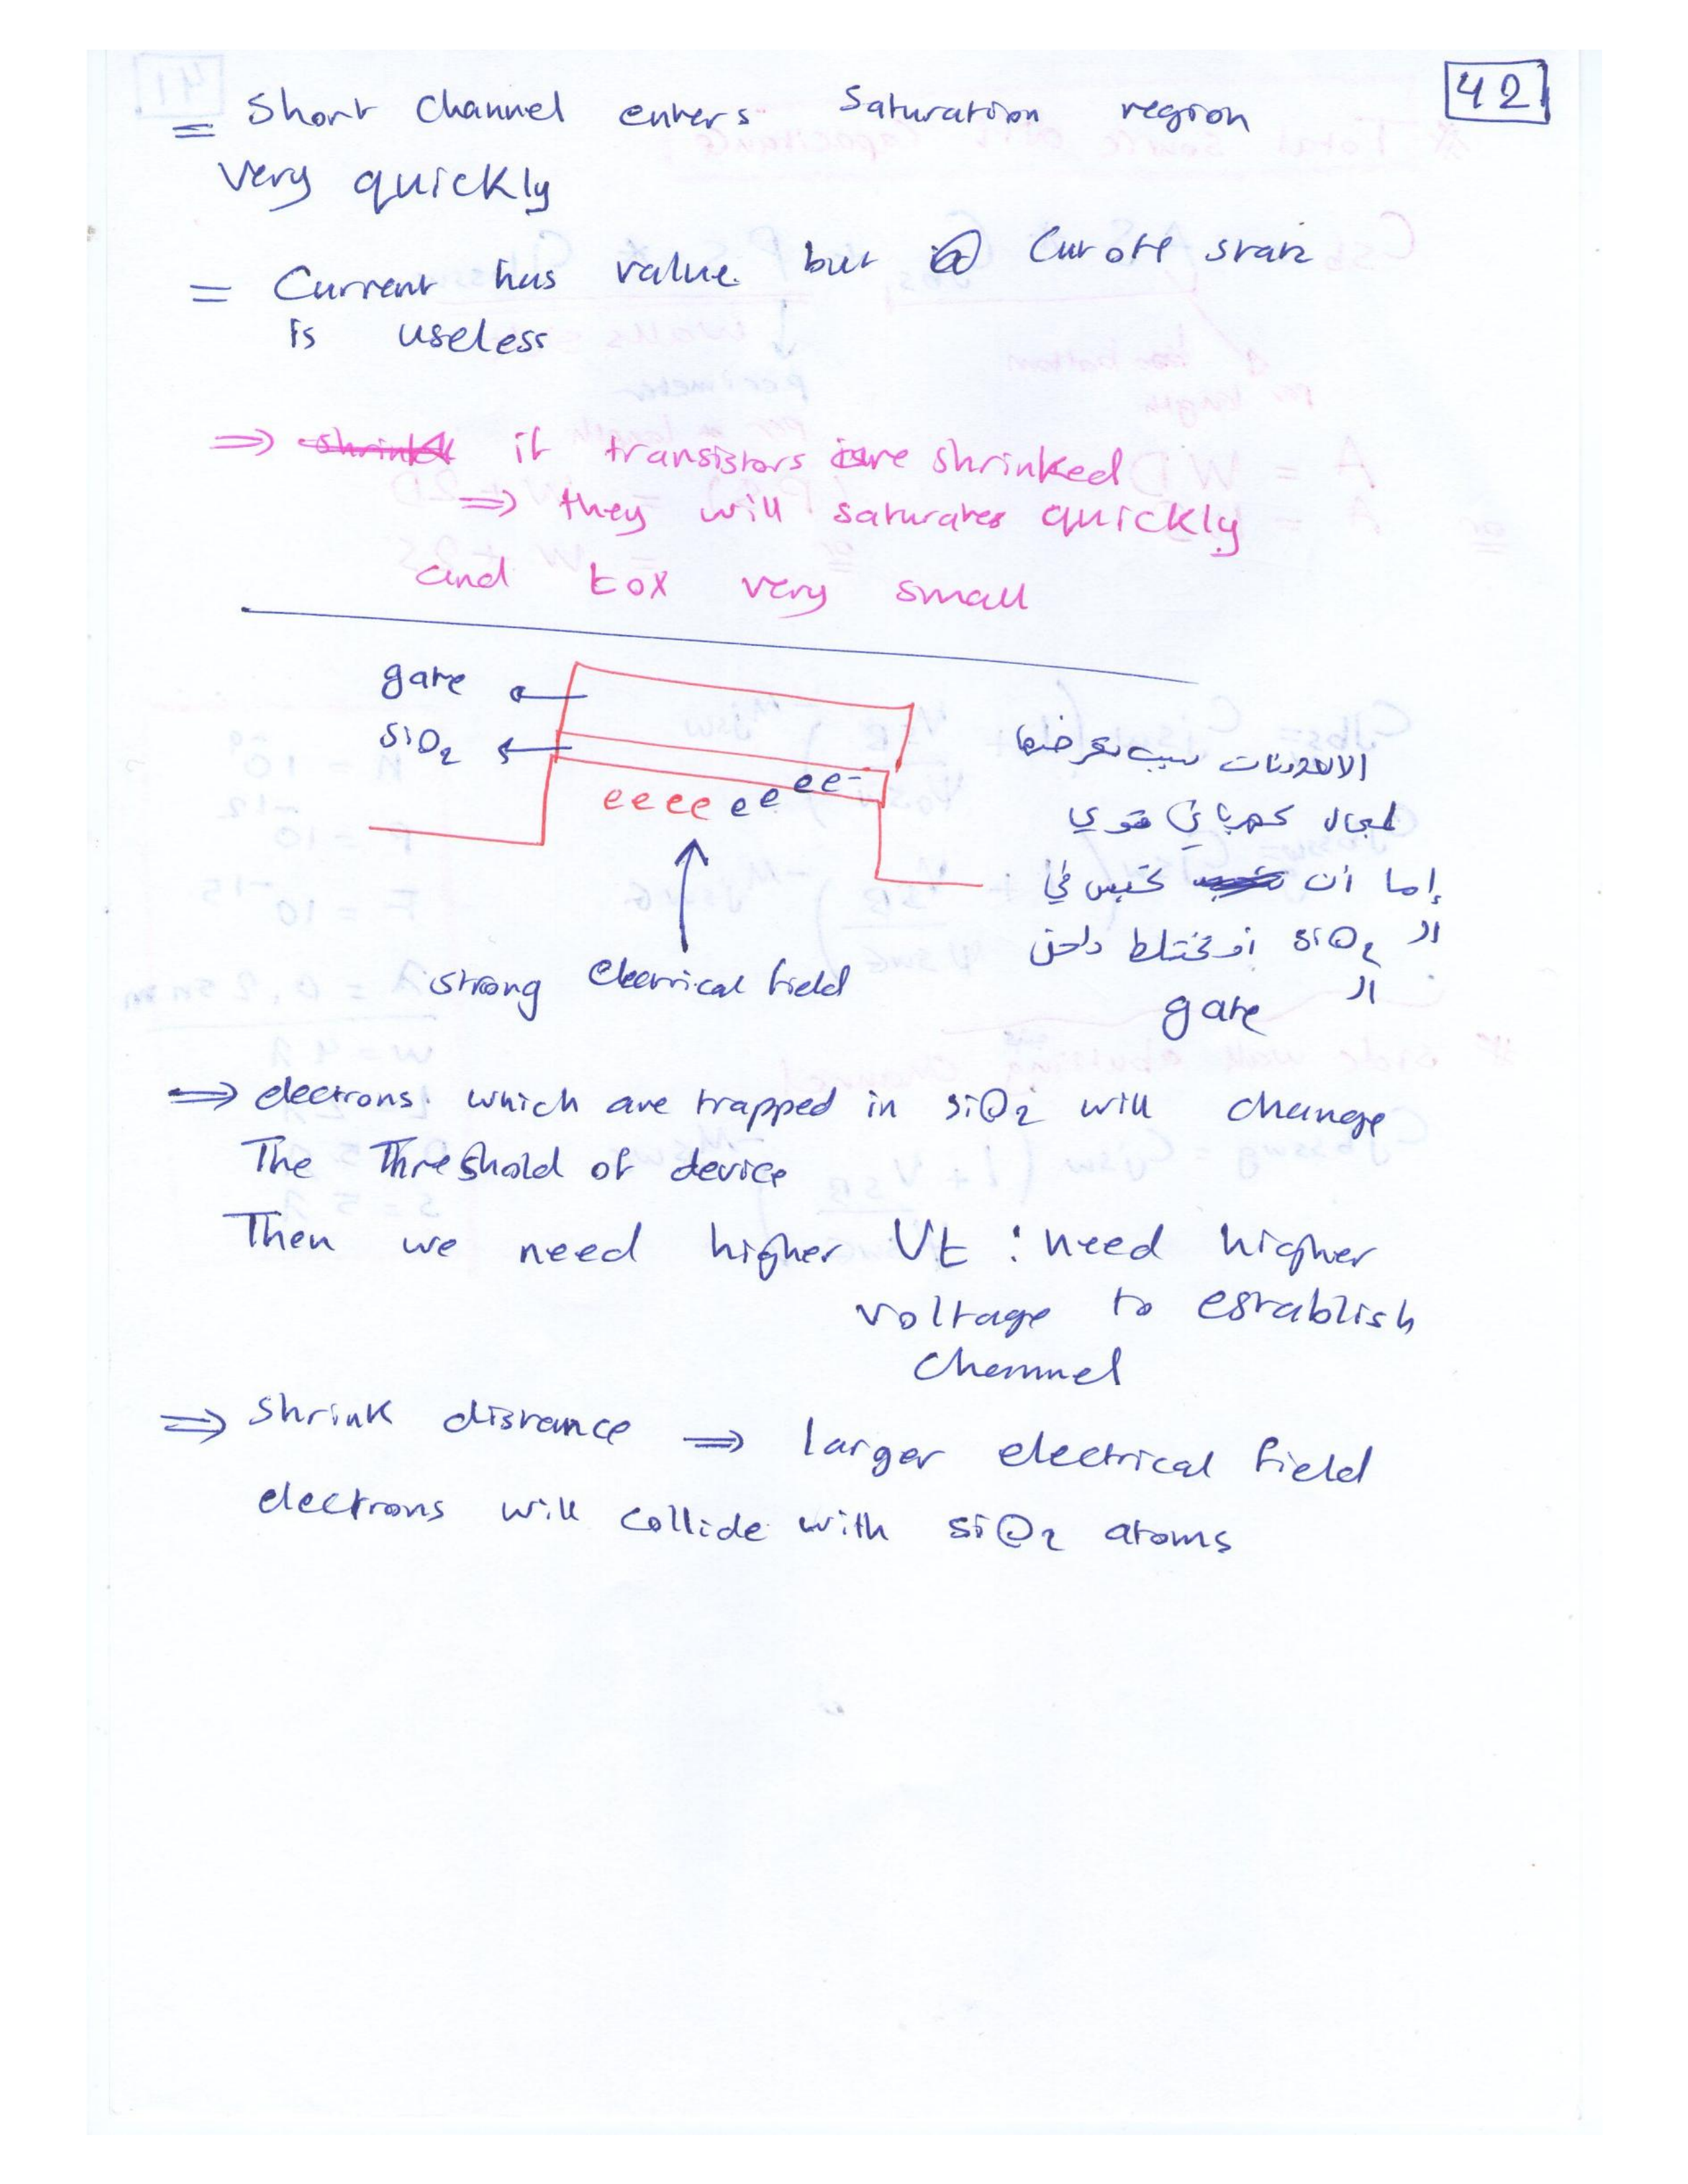 42
= Short Channel enters Saturation region
very quickly
= Current has value but @ Cut off state
is useless
⇒ shrink if transistors are shrinked
⇒ they will saturates quickly
and tox very small
gate
SiO2
eeee ee ee-
strong electrical field
الالكترونات بسبب تعرضها
لمجال كهربائي قوي
إما أن تحبس في
الـ SiO2 أو تختلط داخل
الـ gate
⇒ electrons which are trapped in SiO2 will change
The Threshold of device
Then we need higher Vt : need higher
voltage to establish
channel
⇒ Shrink distance ⇒ larger electrical field
electrons will collide with SiO2 atoms